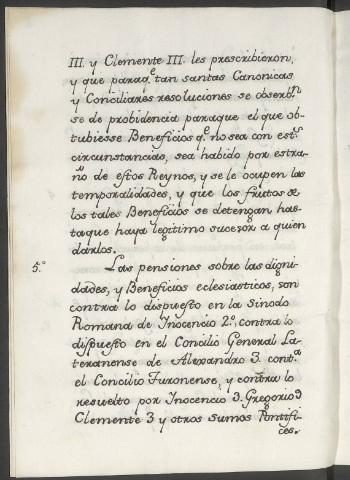 III. y Clemente III. les prescribieron,
y que paraq.e tan santas Canonicas
y Conciliares resoluciones se observ.n
se de probidencia paraque el que ob-
tubiesse Beneficios q.e no sea con est.s
circunstancias, sea habido por estra-
ño de estos Reynos, y se le ocupen las
temporalidades, y que los frutos de
los tales Beneficios se detengan, has-
taque haya legitimo sucesor a quien
darlos.
5.º Las pensiones sobre las digni-
dades, y Beneficios eclesiasticos, son
contra lo dispuesto en la Sinodo
Romana de Inocencio 2.º, contra lo
dispuesto en el Concilio General La-
teranense de Alexandro 3. cont.a
el Concilio Turonense, y contra lo
resuelto por Inocencio 3. Gregorio 9
Clemente 3 y otros Sumos Pontifi-
ces.